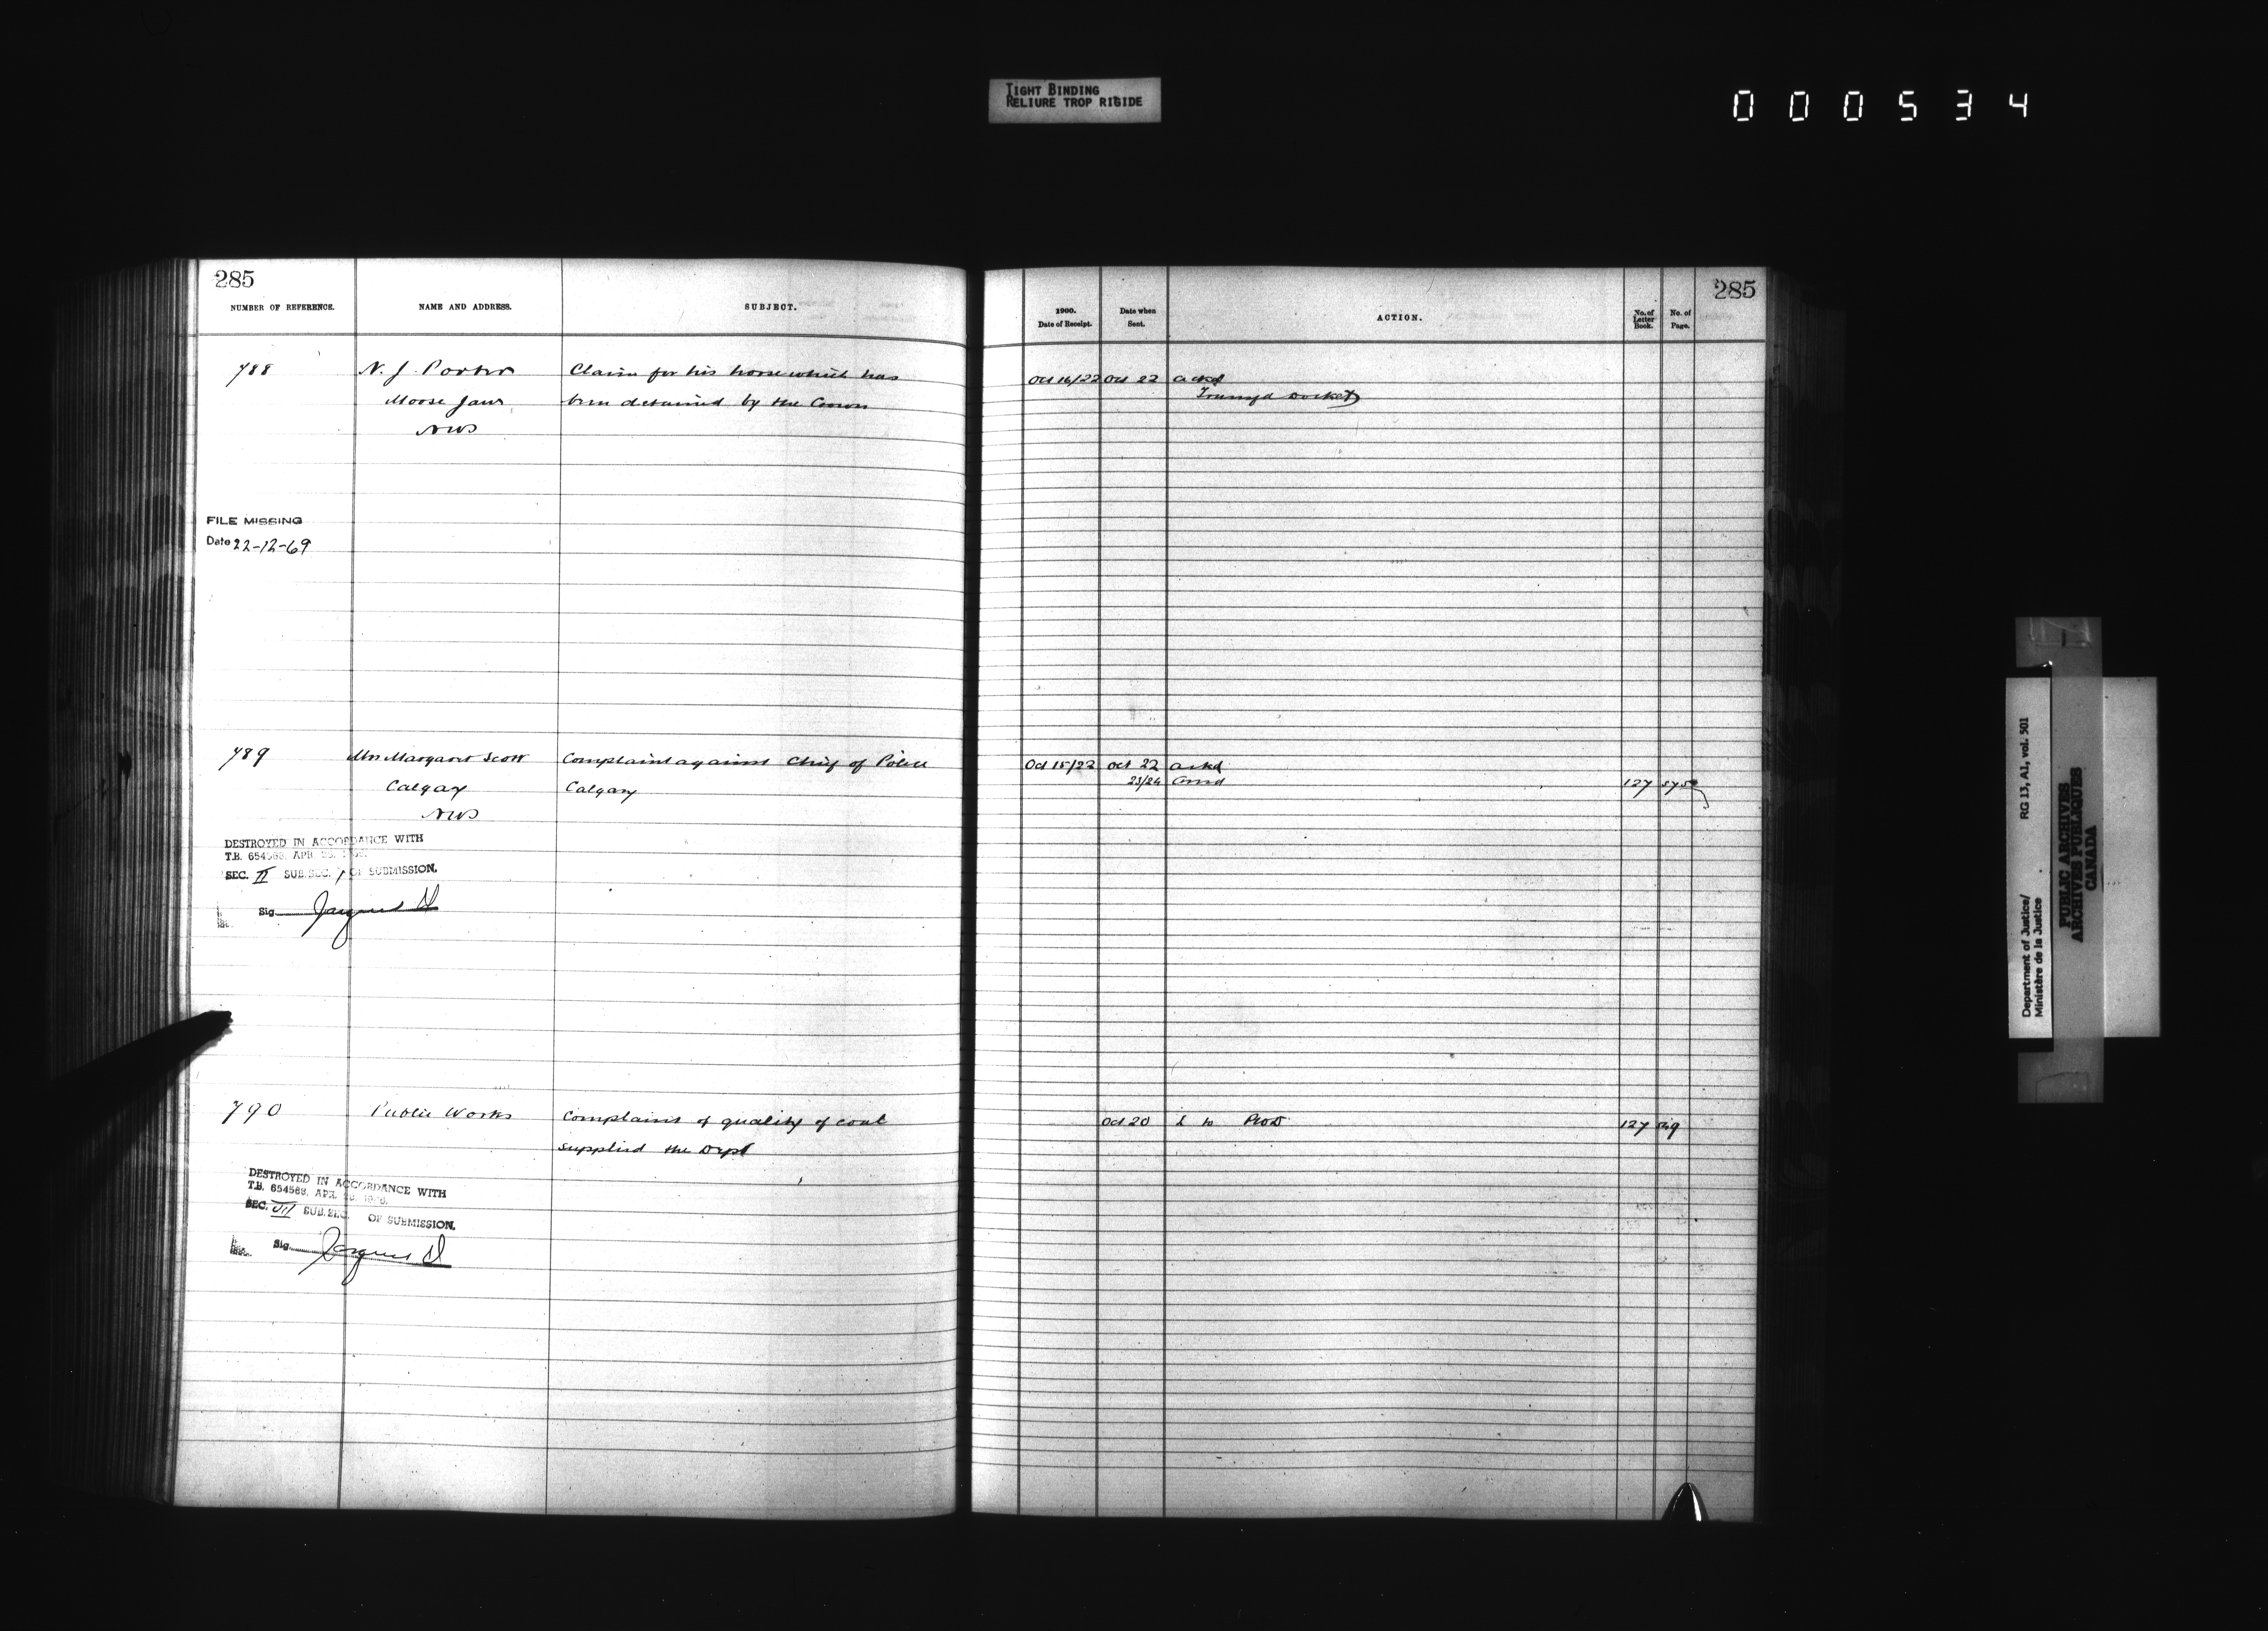 TIGHT BINDING
RELIURE TROP RIGIDE
000534
285
NUMBER OF REFERENCE. NAME AND ADDRESS. SUBJECT.
788 N. J. Porter Claim for his horse which has
Moose Jaw been detained by the Crown
NWT
FILE MISSING
Date 22-12-69
789 Mrs Margaret Scott Complaint against Chief of Police
Calgary Calgary
NWT
DESTROYED IN ACCORDANCE WITH
T.B. 654568, APR. 26,
SEC. II SUB.SEC. 1 OF SUBMISSION,
Sig.
790 Public Works Complaint of quality of coal
supplied the Dept
DESTROYED IN ACCORDANCE WITH
T.B. 654568, APR. 26,
SEC. VII SUB.SEC. OF SUBMISSION,
Sig.
285
1900. Date of Receipt. Date when Sent. ACTION. No. of Letter Book. No. of Page.
Oct 16/22 Oct 22 ackd
Docket
Oct 15/22 Oct 22 ackd
23/24 127
Oct 20 L to 127
Department of Justice/
Ministère de la Justice
RG 13, A1, vol. 501
PUBLIC ARCHIVES
ARCHIVES PUBLIQUES
CANADA